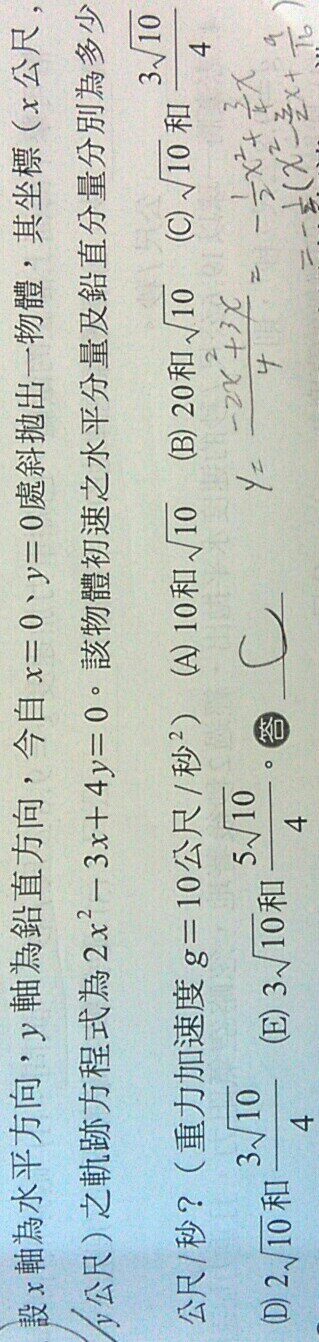 設x軸為水平方向，y軸為鉛直方向，今自x=0、y=0處斜拋出一物體，其坐標（x公尺，
y公尺）之軌跡方程式為2x²-3x+4y=0。該物體初速之水平分量及鉛直分量分別為多少
公尺/秒？（重力加速度g=10公尺/秒²） (A) 10和√10 (B) 20和√10 (C) √10和3√10/4
(D) 2√10和3√10/4 (E) 3√10和5√10/4。答 C
y= (-2x²+3x)/4 = -1/2x²+3/4x
= -1/2(x²-3/2x+9/16)